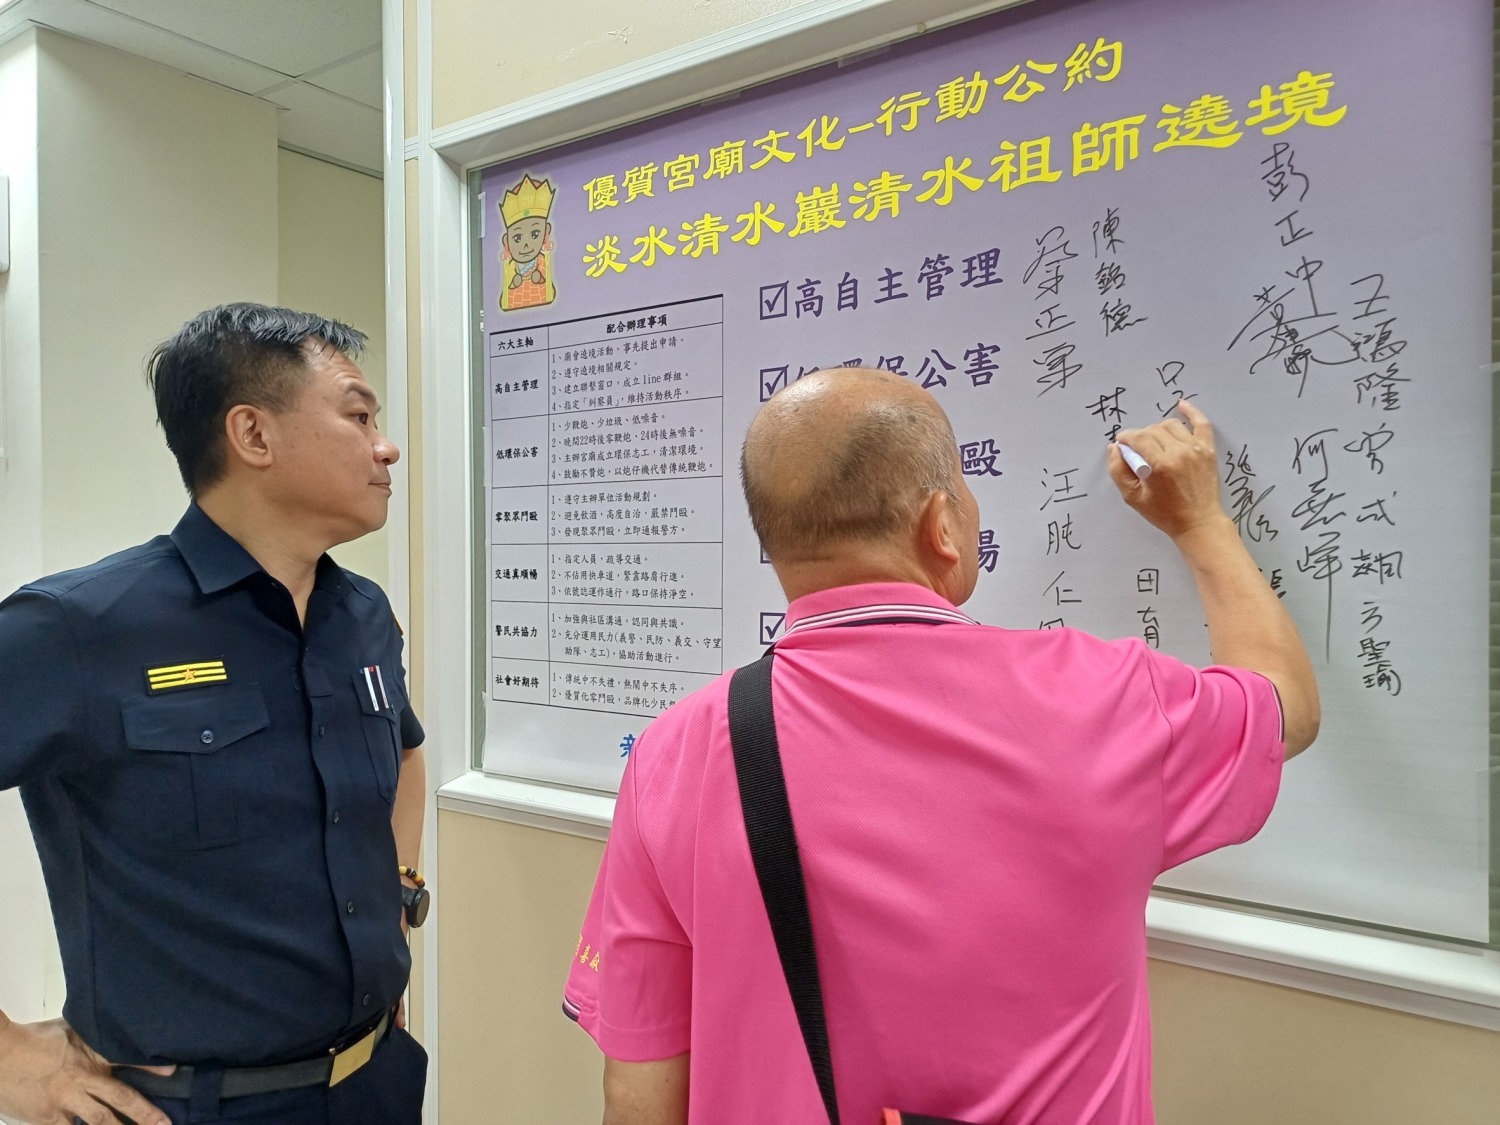 優質宮廟文化-行動公約
淡水清水巖清水祖師遶境
六大主軸
配合辦理事項
高自主管理
1、廟會遶境活動，事先提出申請。
2、遵守遶境相關規定。
3、建立聯繫窗口，成立line群組。
4、指定「糾察員」，維持活動秩序。
低環保公害
1、少鞭炮、少垃圾、低噪音。
2、晚間22時後零鞭炮、24時後無噪音。
3、主辦宮廟成立環保志工，清潔環境。
4、鼓勵不贊炮，以炮仔機代替傳統鞭炮。
零聚眾鬥毆
1、遵守主辦單位活動規劃。
2、避免飲酒，高度自治，嚴禁鬥毆。
3、發現聚眾鬥毆，立即通報警方。
交通真順暢
1、指定人員，疏導交通。
2、不佔用快車道，緊靠路肩行進。
3、依號誌運作通行，路口保持淨空。
警民共協力
1、加強與社區溝通，認同與共識。
2、充分運用民力(義警、民防、義交、守望
助隊、志工)，協助活動進行。
社會好期待
1、傳統中不失禮，熱鬧中不失序。
2、優質化零鬥毆，品牌化少民
高自主管理
環保公害
毆
暢
陳銘德
蔡正
林
汪
仁
田育
彭正中
何
王鴻隆
方聖